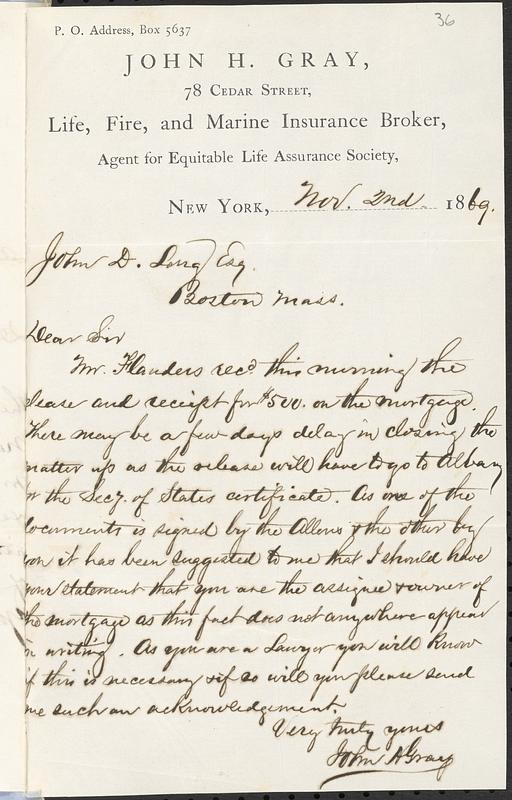 36
P. O. Address, Box 5637
JOHN H. GRAY,
78 Cedar Street,
Life, Fire, and Marine Insurance Broker,
Agent for Equitable Life Assurance Society,
New York, Nov. 2nd 1869.
John D. Long Esq.
Boston Mass.
Dear Sir
Mr. Flanders recd this morning the
elease and receipt for $500. on the mortgage.
There may be a few days delay in closing the
matter up as the release will have to go to Albany
or the Secy. of States certificate. As one of the
documents is signed by the Allens & the other by
you it has been suggested to me that I should have
your statement that you are the assignee & owner of
the mortgage as this fact does not anywhere appear
in writing. As you are a Lawyer you will know
if this is necessary & if so will you please send
me such an acknowledgement.
Very truly yours
John H Gray